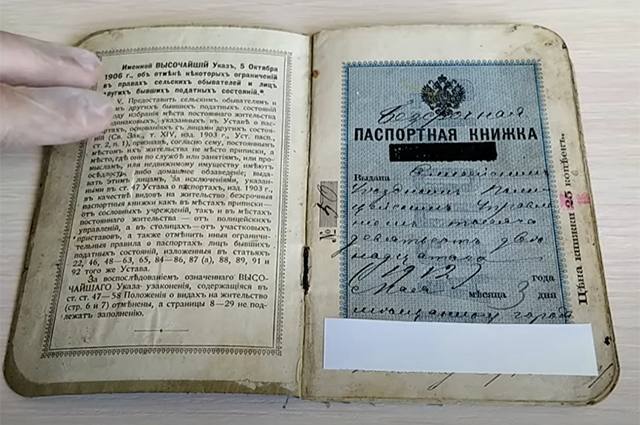 Именной ВЫСОЧАЙШІЙ Указъ, 5 Октября
1906 г., объ отмѣнѣ нѣкоторыхъ ограниченій
въ правахъ сельскихъ обывателей и лицъ
другихъ бывшихъ податныхъ состояній.*
V. Предоставить сельскимъ обывателямъ и
другихъ бывшихъ податныхъ состояній
избранія мѣста постояннаго жительства
одинаковыхъ, указанныхъ въ Уставѣ о па-
спортахъ, основаніяхъ съ лицами другихъ состоя-
ній (Св. Зак., т. XIV, изд. 1903 г., Уст. пасп.,
ст. 2, п. 1), признавъ, согласно сему, постояннымъ
мѣстомъ ихъ жительства не мѣсто приписки, а
мѣсто, гдѣ они по службѣ или занятіямъ, или про-
мысламъ, или недвижимому имуществу имѣютъ
осѣдлость, либо домашнее обзаведеніе; выда-
вать этимъ лицамъ, за исключеніями, указан-
ными въ ст. 47 Устава о паспортахъ, изд. 1903 г.,
въ качествѣ видовъ на жительство безсрочныя
паспортныя книжки какъ въ мѣстахъ приписки—
отъ сословныхъ учрежденій, такъ и въ мѣстахъ
постояннаго жительства — отъ полицейскихъ
управленій, а въ столицахъ — отъ участковыхъ
приставовъ, а также отмѣнить иныя ограничи-
тельныя правила о паспортахъ лицъ бывшихъ
податныхъ состояній, изложенныя въ статьяхъ
22, 46, 48—63, 65, 84—86, 87 (а), 88, 89, 91
и 92 того же Устава.
За воспослѣдованіемъ означеннаго ВЫСО-
ЧАЙШАГО Указа узаконенія, содержащіяся въ
ст. ст. 47—58 Положенія о видахъ на жительство
(стр. 6 и 7) отмѣнены, а страницы 8—29 не под-
лежатъ заполненію.
Безсрочная
ПАСПОРТНАЯ КНИЖКА
Выдана
№ 50
тысяча
девятьсотъ двѣ-
надцатаго
(1912) года
Мая мѣсяца 3 дня
Цѣна книжки 25 копѣекъ.